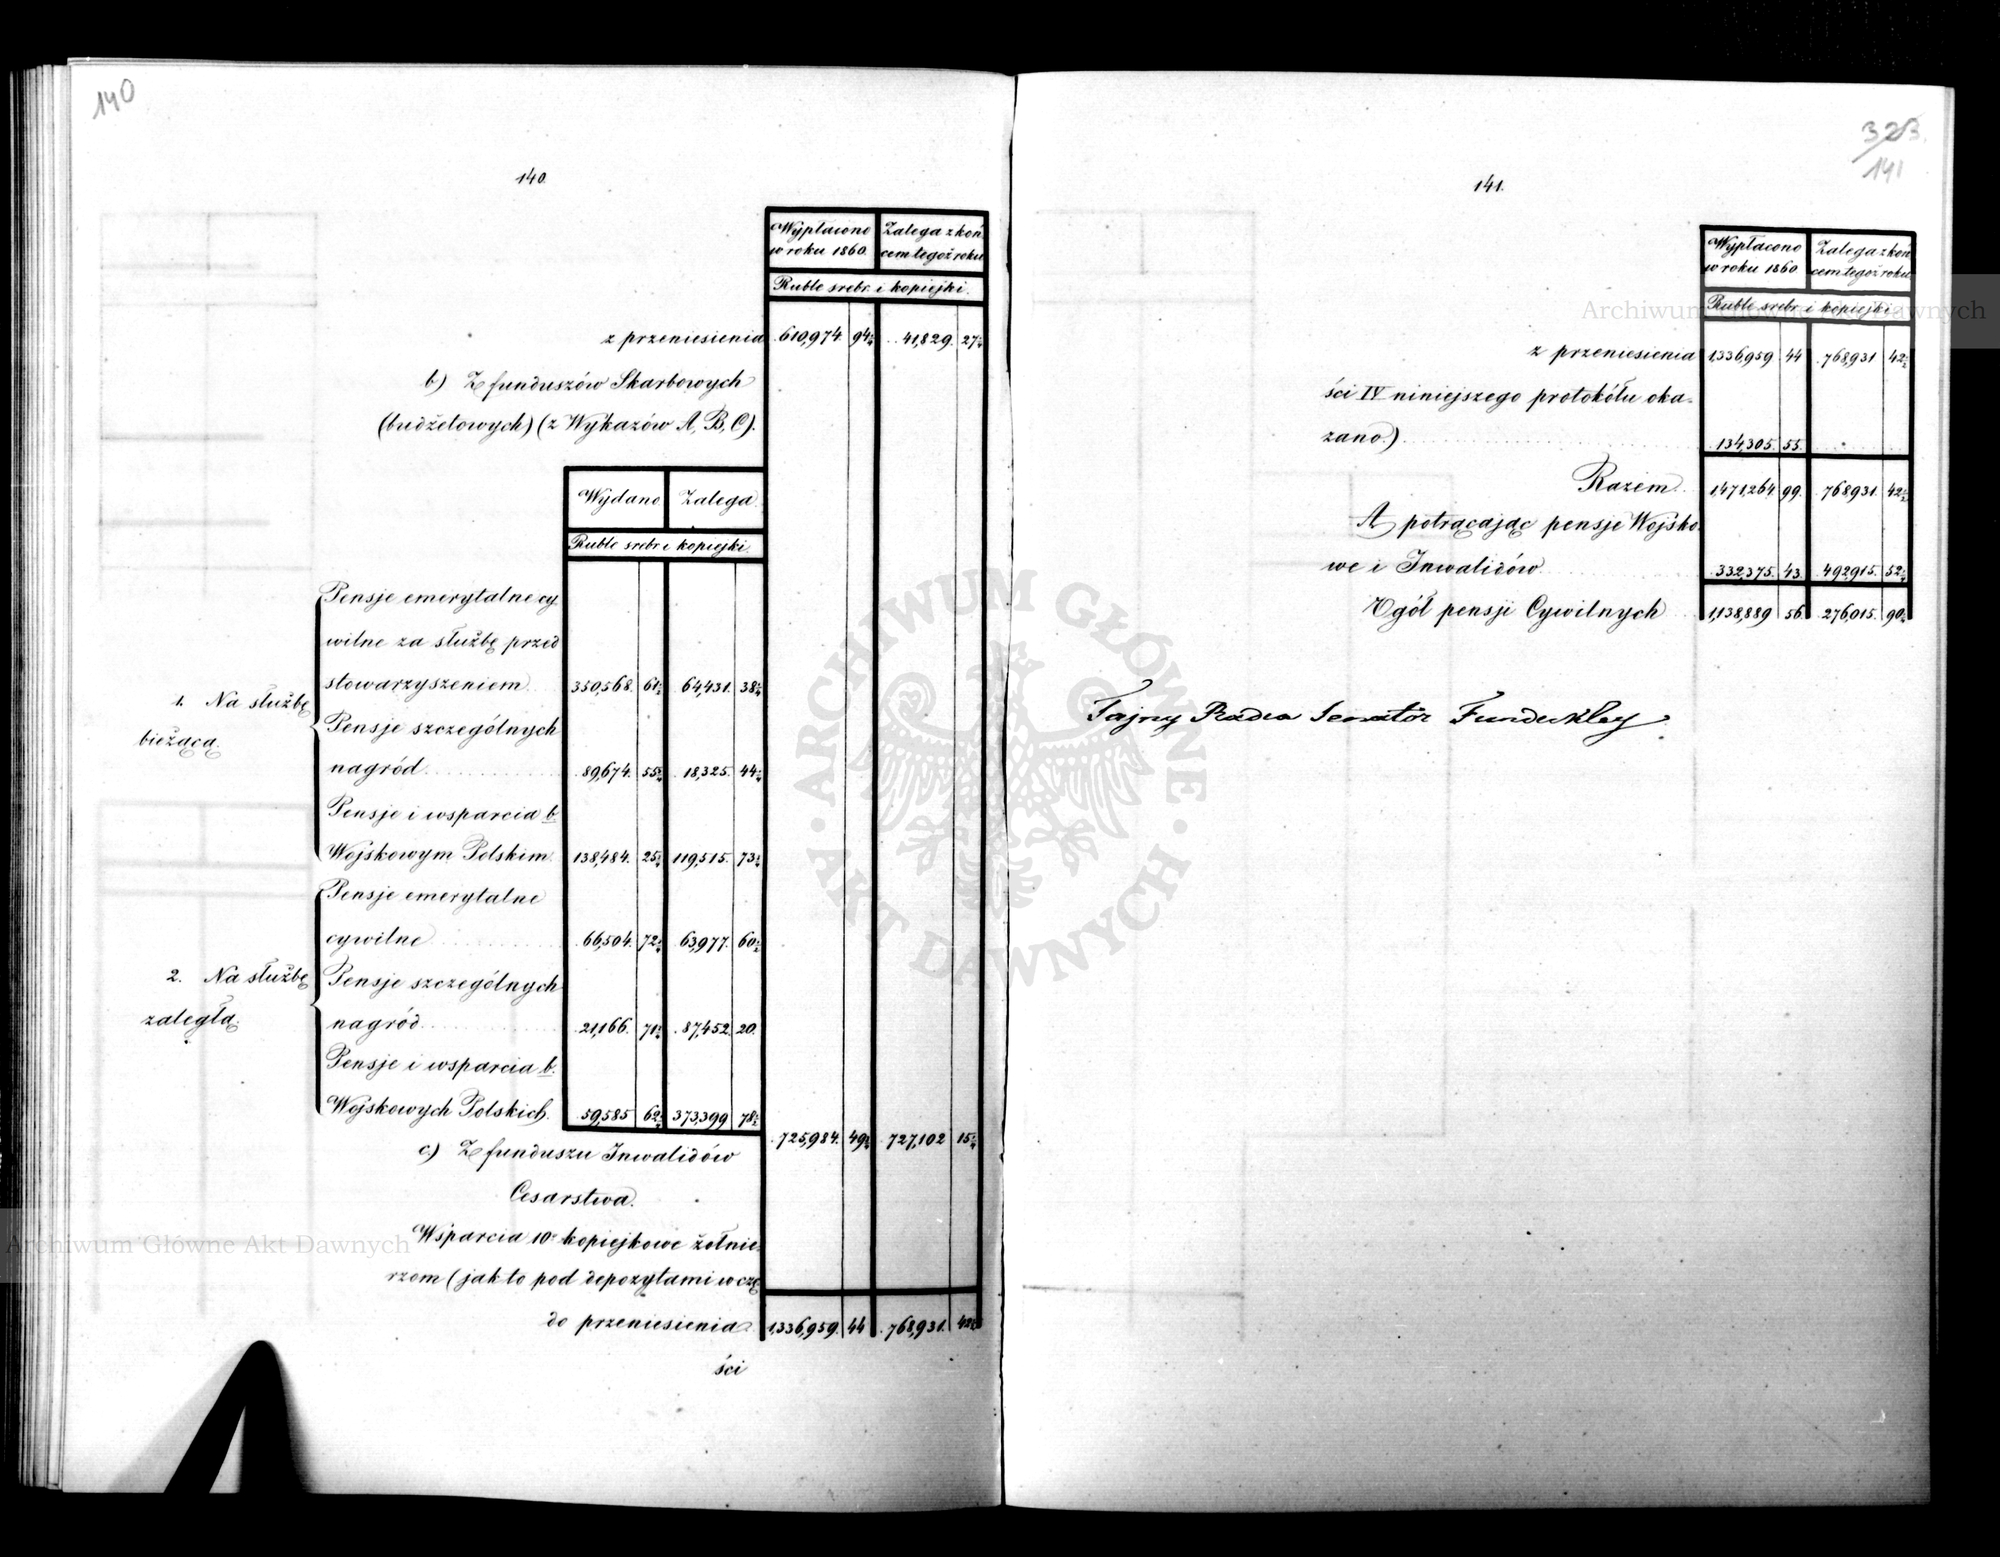 140
140.
Wypłacono
w roku 1860.
Zalega z koń
cem tegoż roku
Ruble srebr. i kopiejki.
z przeniesienia 610,974. 94 41,829. 27
b) Z funduszów Skarbowych
(budżetowych) (z Wykazów A, B, C).
Wydano Zalega.
Ruble srebr. i kopiejki.
Pensje emerytalne cy
wilne za służbę przed
stowarzyszeniem 350,568. 61 64,431. 38
1. Na służbę
bieżącą.
Pensje szczególnych
nagród 89,674. 55 18,325. 44
Pensje i wsparcia b.
Wojskowym Polskim. 138,484. 25 119,515. 73
Pensje emerytalne
cywilne 66,504. 72 63,977. 60
2. Na służbę
zaległą.
Pensje szczególnych
nagród 21,166. 71 87,452. 20.
Pensje i wsparcia b.
Wojskowych Polskich. 59,585 62 373,399 78
725,984. 49 727,102 15
c) Z funduszu Inwalidów
Cesarstwa.
Wsparcia 10 kopiejkowe żołnie
rzom (jak to pod depozytami w czę
do przeniesienia 1,336,959. 44 768,931. 42
ści
323.
141
141.
Wypłacono
w roku 1860
Zalega z koń
cem tegoż roku
Ruble srebr. i kopiejki
z przeniesienia 1,336,959 44 768,931 42
ści IV niniejszego protokółu oka-
zano.) 134,305. 55.
Razem 1,471,264. 99. 768,931. 42
A potrącając pensje Wojsko
we i Inwalidów 332,375. 43. 492,915. 52
Ogół pensji Cywilnych 1,138,889 56. 276,015. 90
Tajny Radca Senator Fundukley
ARCHIWUM GŁÓWNE
AKT DAWNYCH
Archiwum Główne Akt Dawnych
Archiwum Główne Akt Dawnych